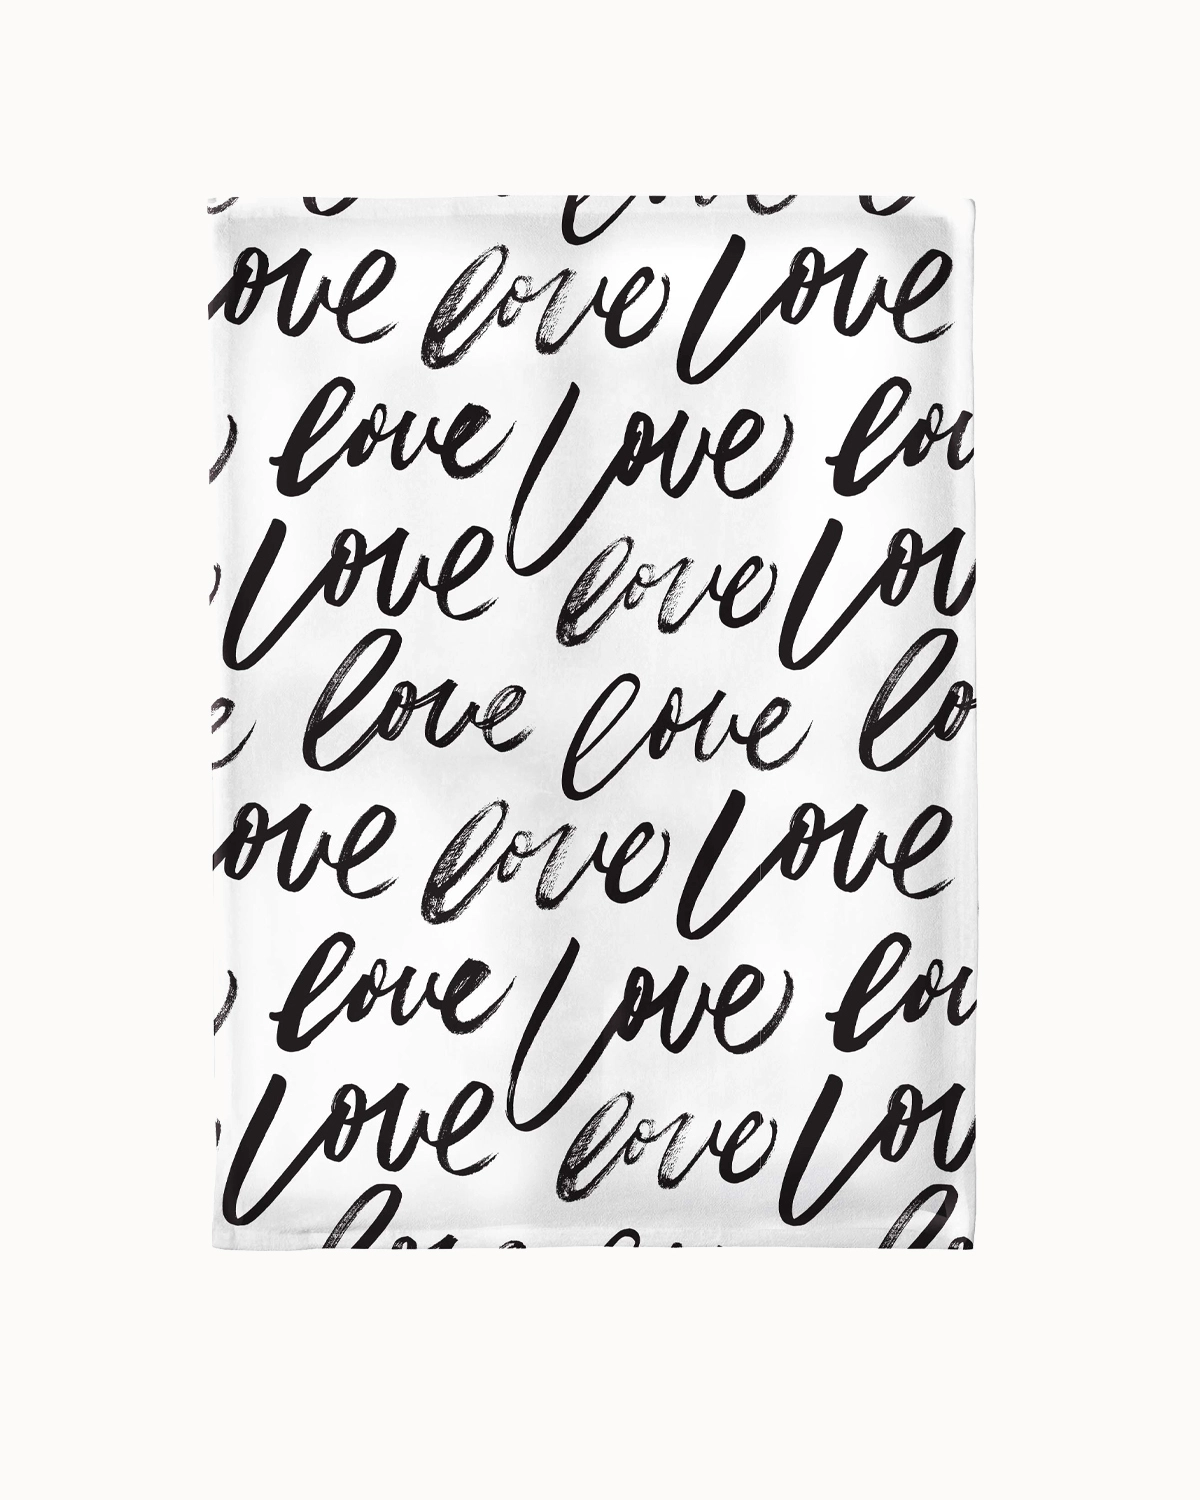 ove love love
love love lov
love love lov
love love lo
ove love love
love love lov
love love lov